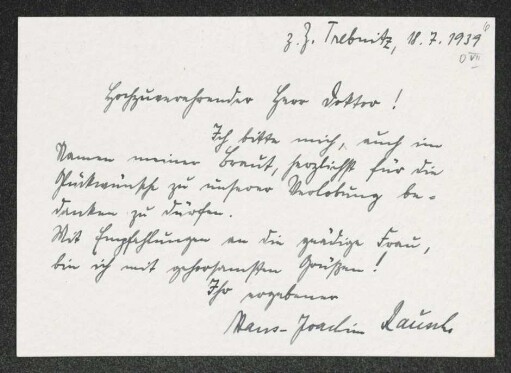 z. Z. Trebnitz, 18. 7. 1939
Hochzuverehrender Herr Doktor!
Ich bitte mich, auch im
Namen meiner Braut, herzlichst für die
Glückwünsche zu unserer Verlobung be-
danken zu dürfen.
Mit Empfehlungen an die gnädige Frau,
bin ich mit gehorsamsten Grüßen!
Ihr ergebener
Hans-Joachim